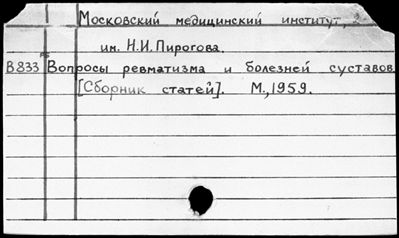 Московский медицинский институт, 2
им. Н.И. Пирогова.
В833 Вопросы ревматизма и болезней суставов
[Сборник статей]. М., 1959.